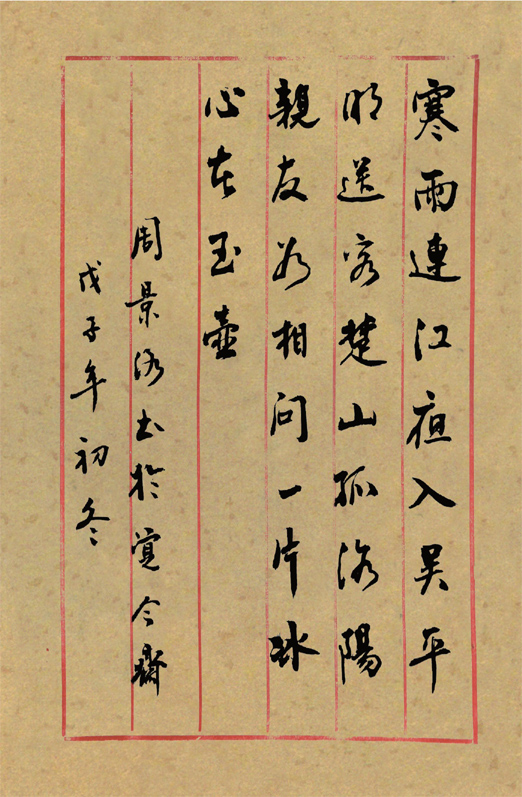 寒雨連江夜入吴平
明送客楚山孤洛陽
親友如相問一片冰
心在玉壺
周景洛书於覺今齋
戊子年初冬